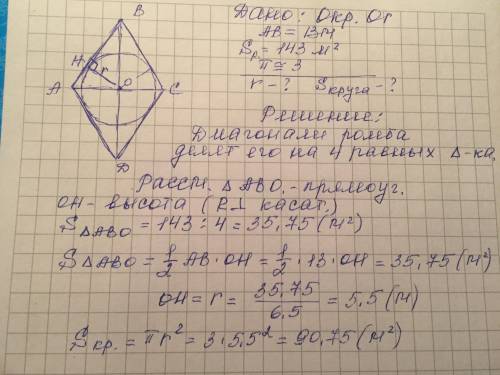 B
Дано: Окр. Or
AB = 13м
Sр = 143 м²
π ≅ 3
r - ? Sкруга - ?
H
r
A
O
C
D
Решение:
Диагонали ромба
делят его на 4 равных Δ-ка.
Рассм. ΔABO. - прямоуг.
OH - высота (R⊥ касат.)
SΔABO = 143 : 4 = 35,75 (м²)
SΔABO = 1/2 AB · OH = 1/2 · 13 · OH = 35,75 (м²)
OH = r = 35,75/6,5 = 5,5 (м)
Sкр. = πr² = 3 · 5,5² = 90,75 (м²)